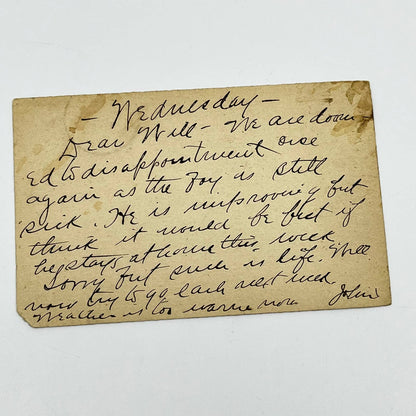 - Wednesday -
Dear Will - We are doom
ed to disappointment once
again as the boy is still
sick. He is improving but
think it would be best if
he stays at home this week.
Sorry but such is life. Will
now try to go each next week
Weather is too warm now John